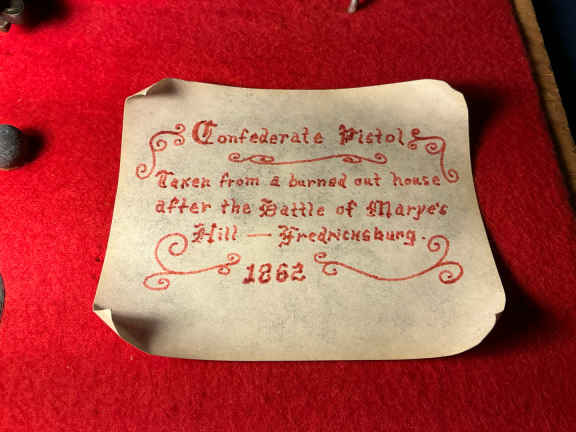 Confederate Pistol
Taken from a burned out house
after the Battle of Marye's
Hill — Fredricksburg.
1862